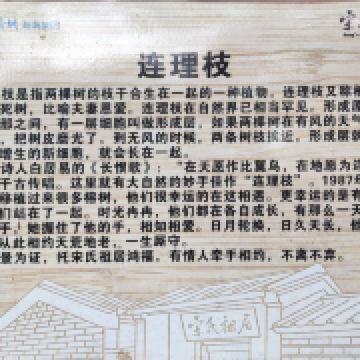 连理枝
枝是指两棵树的枝干合生在一起的一种植物。连理枝又称
死树，比喻夫妻恩爱。连理枝在自然界已相当罕见。形成层
部之间，有一层细胞叫做形成层。如果两棵树在有风的天气
，把树皮磨光了。到无风的时候，两条树枝挨近，形成层
增生的新细胞，就会长在一起。
诗人白居易的《长恨歌》："在天愿作比翼鸟，在地愿为
千古传唱。这里就有大自然的妙手佳作"连理枝"。1987年
移植过来很多榕树，他们很幸运的在这相遇。更幸运的是
们站在了一起。时光冉冉，他们都在各自成长，有那么一天
手，她握住了他的手，相知相爱。日月轮换，日久天长，他
从此相约天荒地老，一生厮守。
景为证，托宋氏祖居鸿福。有情人牵手相约，不离不弃。
宋氏祖居